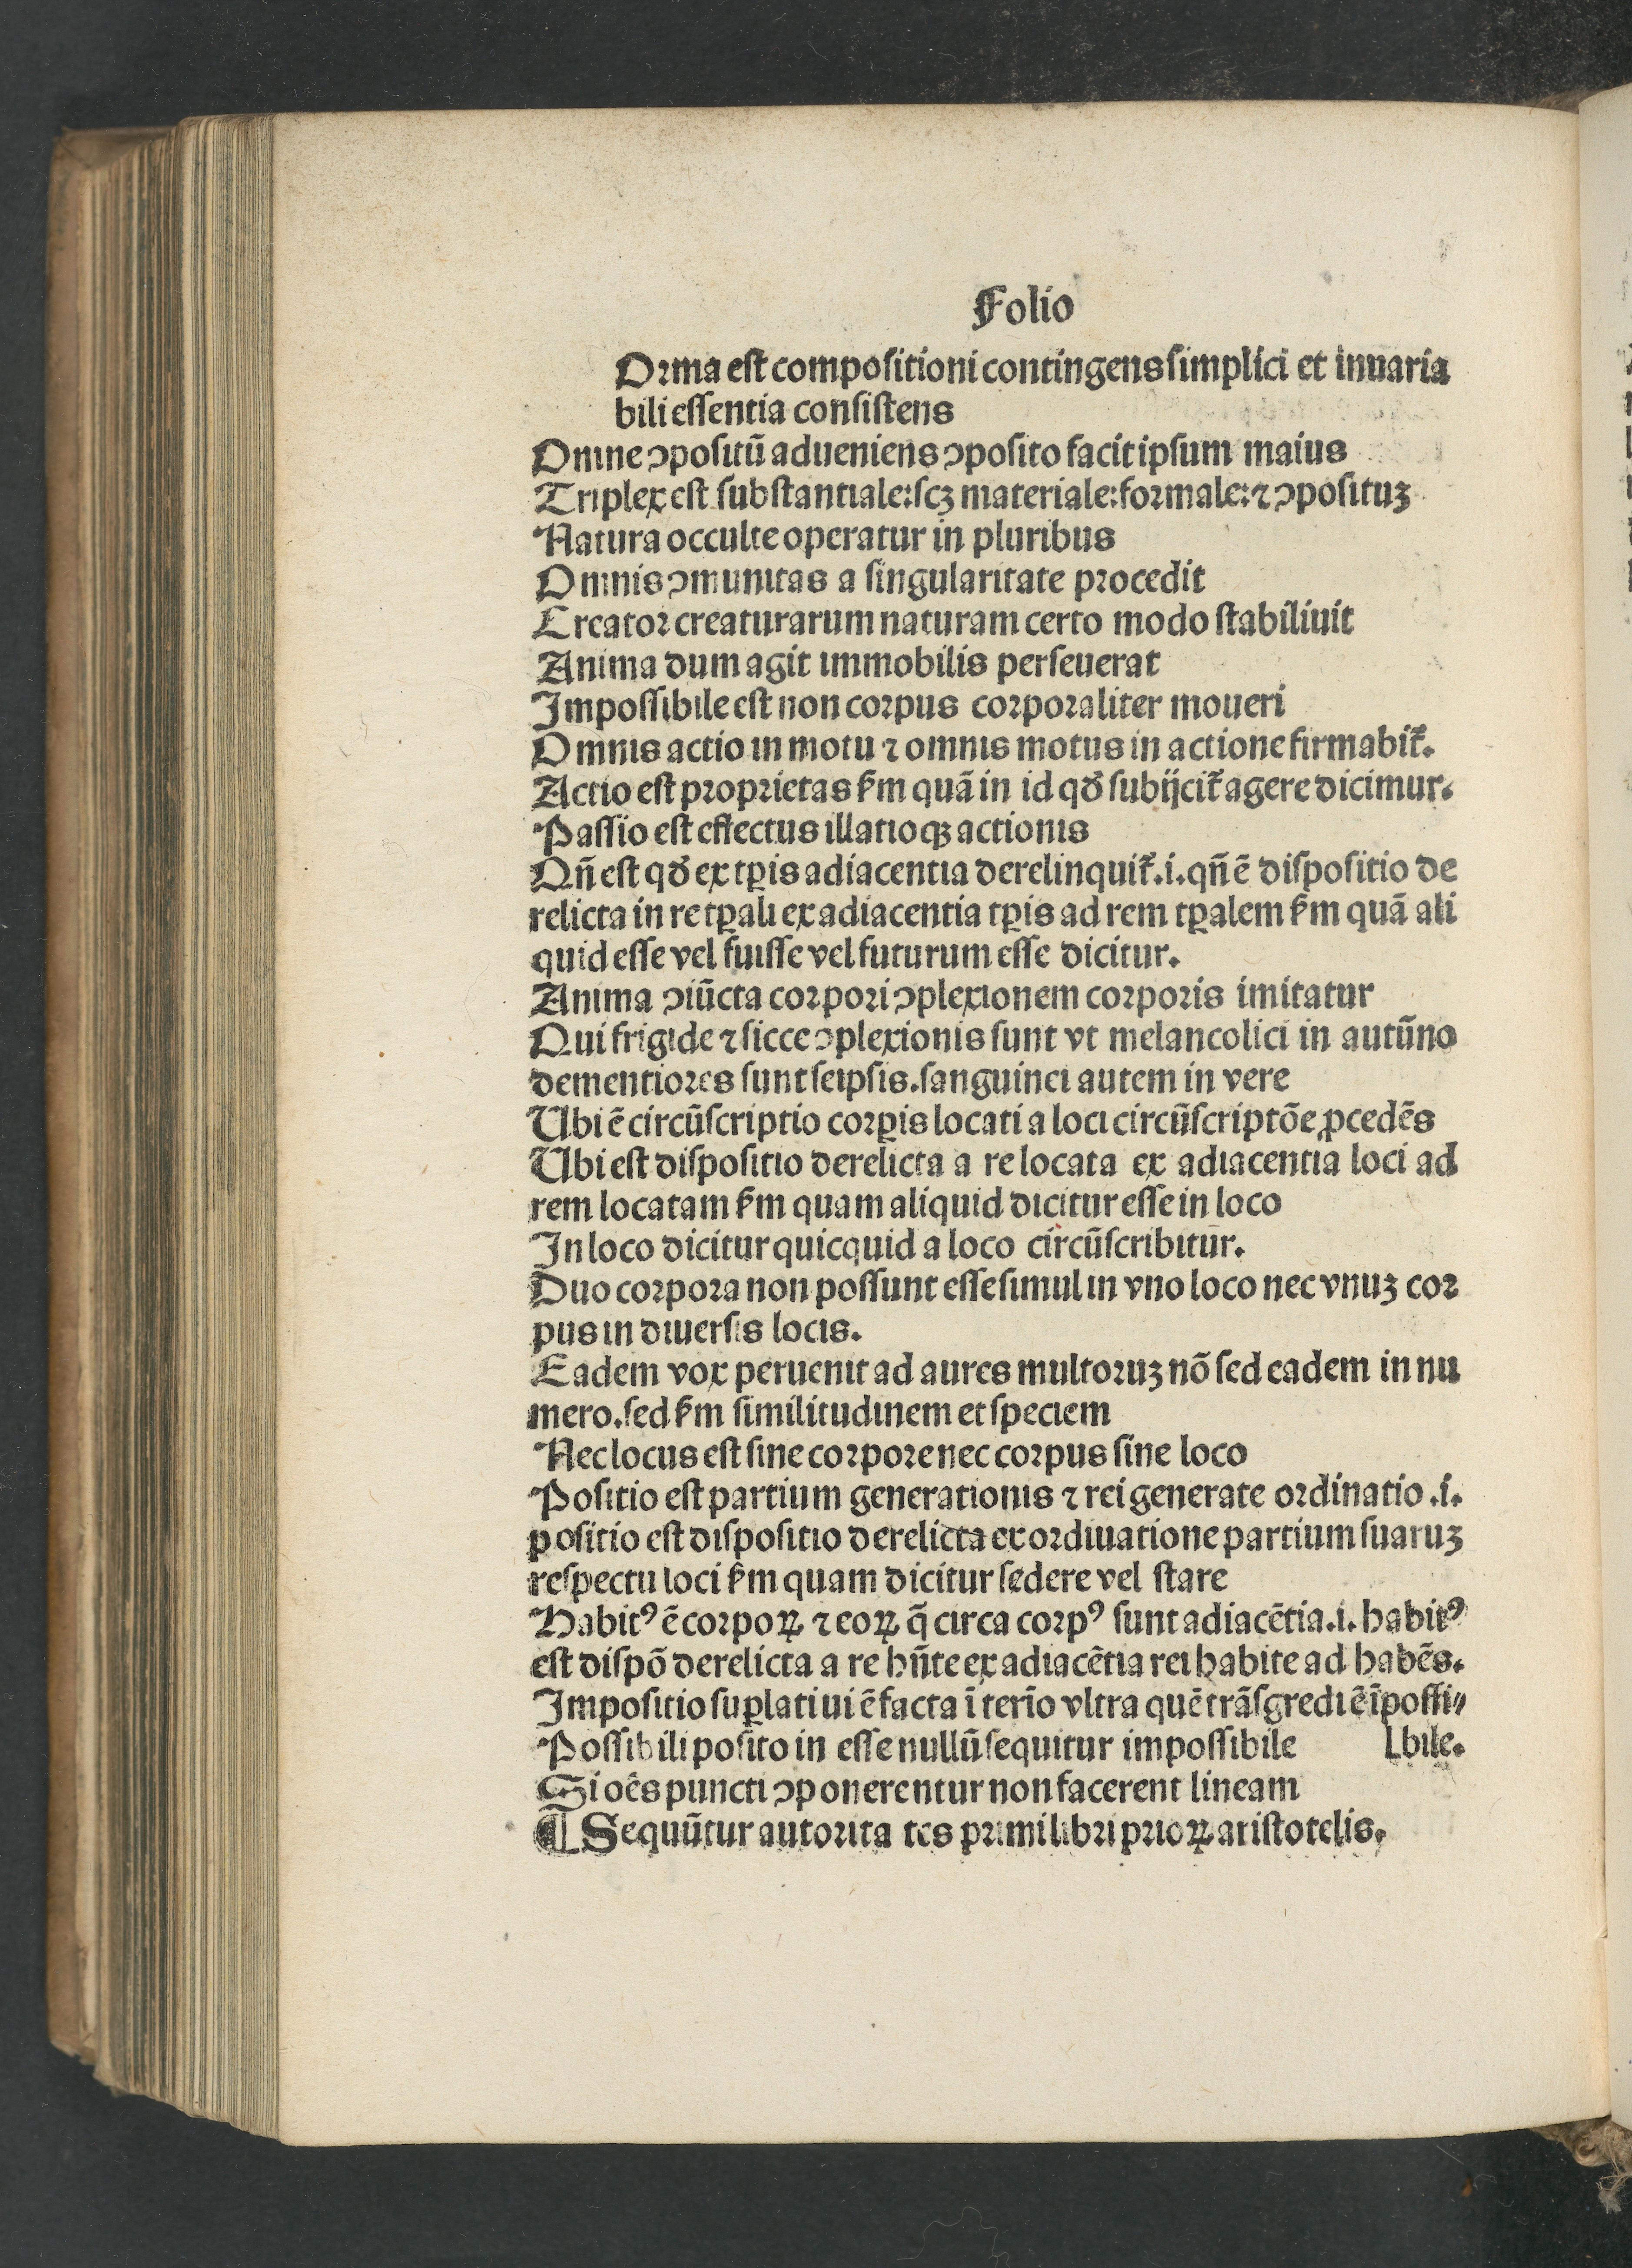 Folio
Orma est compositioni contingens simplici et inuaria
bili essentia consistens
Omne ↄpositū adueniens ↄposito facit ipsum maius
Triplex est substantiale:scꝫ materiale:formale:⁊ ↄposituꝫ
Natura occulte operatur in pluribus
Omnis ↄmunitas a singularitate procedit
Creator creaturarum naturam certo modo stabiliuit
Anima dum agit immobilis perseuerat
Impossibile est non corpus corporaliter moueri
Omnis actio in motu ⁊ omnis motus in actione firmabit᷑.
Actio est proprietas ẜm quā in id qđ subijcit᷑ agere dicimur.
Passio est effectus illatioqꝫ actionis
Qn̄ est qđ ex tꝑis adiacentia derelinquit᷑.i.qn̄ ē dispositio de
relicta in re tꝑali ex adiacentia tꝑis ad rem tꝑalem ẜm quā ali
quid esse vel fuisse vel futurum esse dicitur.
Anima ↄiūcta corpori ↄplexionem corporis imitatur
Qui frigide ⁊ sicce ↄplexionis sunt vt melancolici in autūno
dementiores sunt seipsis.sanguinei autem in vere
Ubi ē circūscriptio corꝑis locati a loci circūscriptōe ꝓcedēs
Ubi est dispositio derelicta a re locata ex adiacentia loci ad
rem locatam ẜm quam aliquid dicitur esse in loco
In loco dicitur quicquid a loco circūscribitur.
Duo corpora non possunt esse simul in vno loco nec vnuꝫ cor
pus in diuersis locis.
Eadem vox peruenit ad aures multoruꝫ nō sed eadem in nu
mero.sed ẜm similitudinem et speciem
Nec locus est sine corpore nec corpus sine loco
Positio est partium generationis ⁊ rei generate ordinatio .i.
positio est dispositio derelicta ex ordiuatione partium suaruꝫ
respectu loci ẜm quam dicitur sedere vel stare
Habitꝰ ē corpoꝝ ⁊ eoꝝ q̄ circa corpꝰ sunt adiacētia.i.habitꝰ
est dispō derelicta a re hn̄te ex adiacētia rei habite ad habēs.
Impositio suꝑlatiui ē facta ī terīo vltra quē trāsgredi ē īpossi⸗
Possibili posito in esse nullū sequitur impossibile [bile.
Si oēs puncti ↄponerentur non facerent lineam
¶ Sequūtur autorita tes primi libri prioꝝ aristotelis.